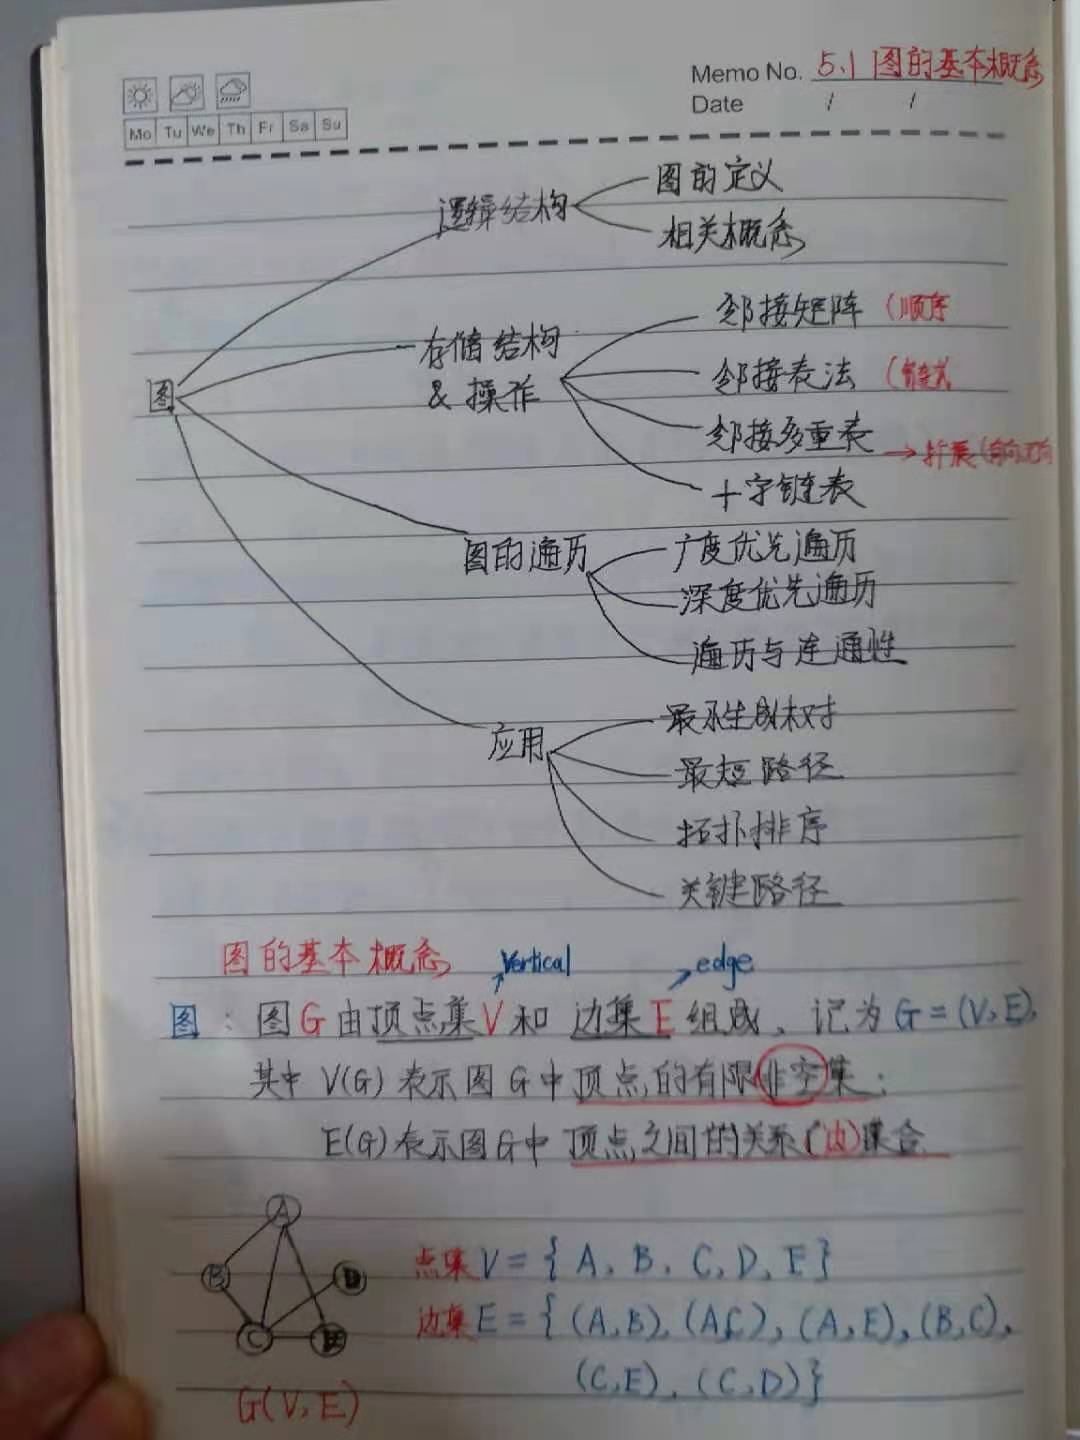 Memo No. 5.1 图的基本概念
Date / /
Mo Tu We Th Fr Sa Su
图
逻辑结构
图的定义
相关概念
存储结构
& 操作
邻接矩阵 (顺序
邻接表法 (链式
邻接多重表
→ 扩展(有向无向
十字链表
图的遍历
广度优先遍历
深度优先遍历
遍历与连通性
应用
最小生成树
最短路径
拓扑排序
关键路径
图的基本概念 Vertical edge
图：图G由顶点集V和边集E组成、记为G=(V,E),
其中V(G)表示图G中顶点的有限非空集；
E(G)表示图G中顶点之间的关系(边)集合
A
B
D
C
E
G(V,E)
点集V={A,B,C,D,E}
边集E={(A,B),(A,C),(A,E),(B,C),
(C,E),(C,D)}